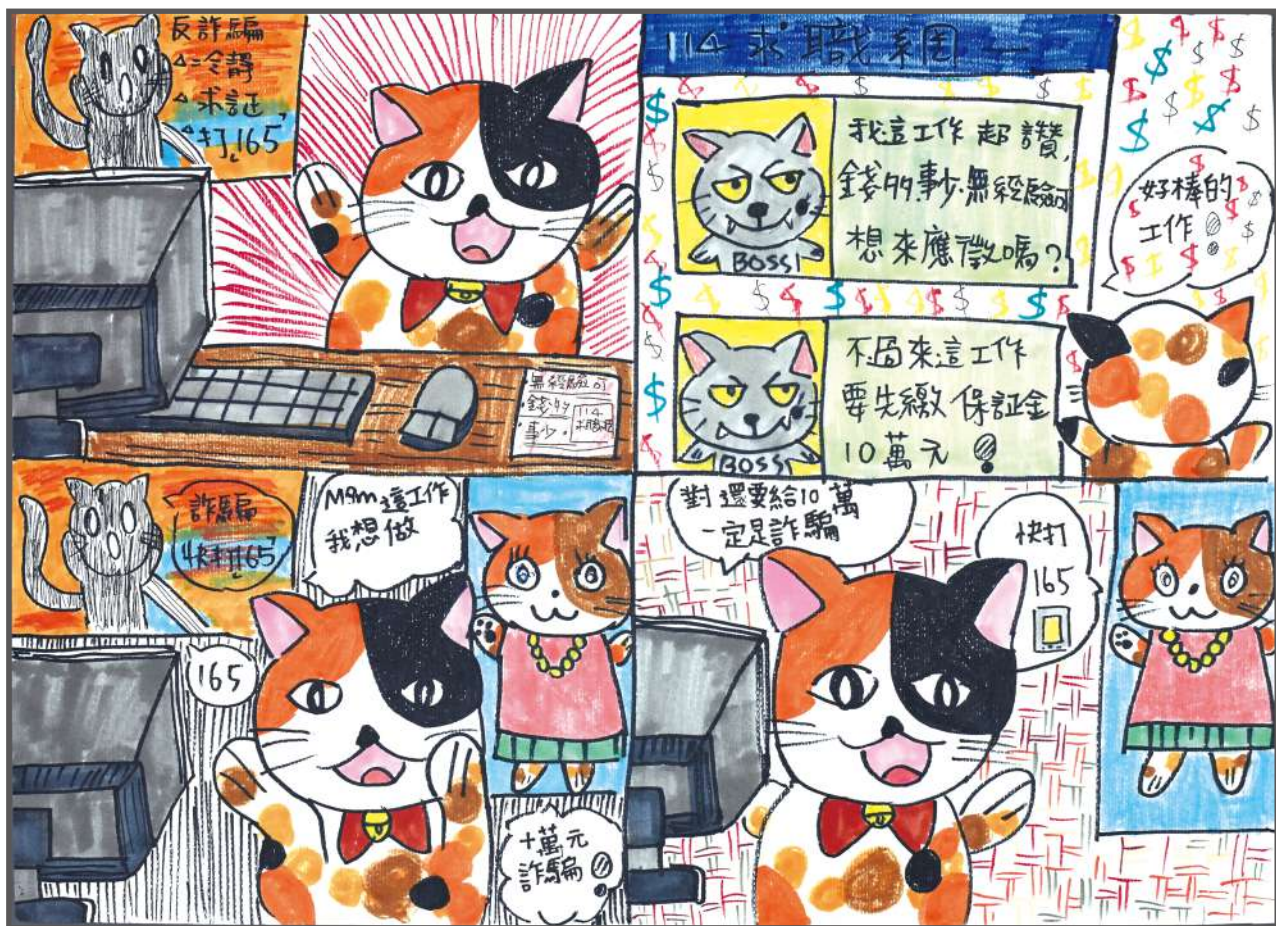 反詐騙
△冷靜
△求証
△打「165」
無經驗可
錢多
事少
114
求職網
114求職網
我這工作超讚,
錢多事少.無經驗可
想來應徵嗎？
BOSS
好棒的
工作!
不過來這工作
要先繳保証金
10萬元!
BOSS
詐騙
快打「165」
165
Mam這工作
我想做
十萬元
詐騙!
對還要給10萬
一定是詐騙
快打
165